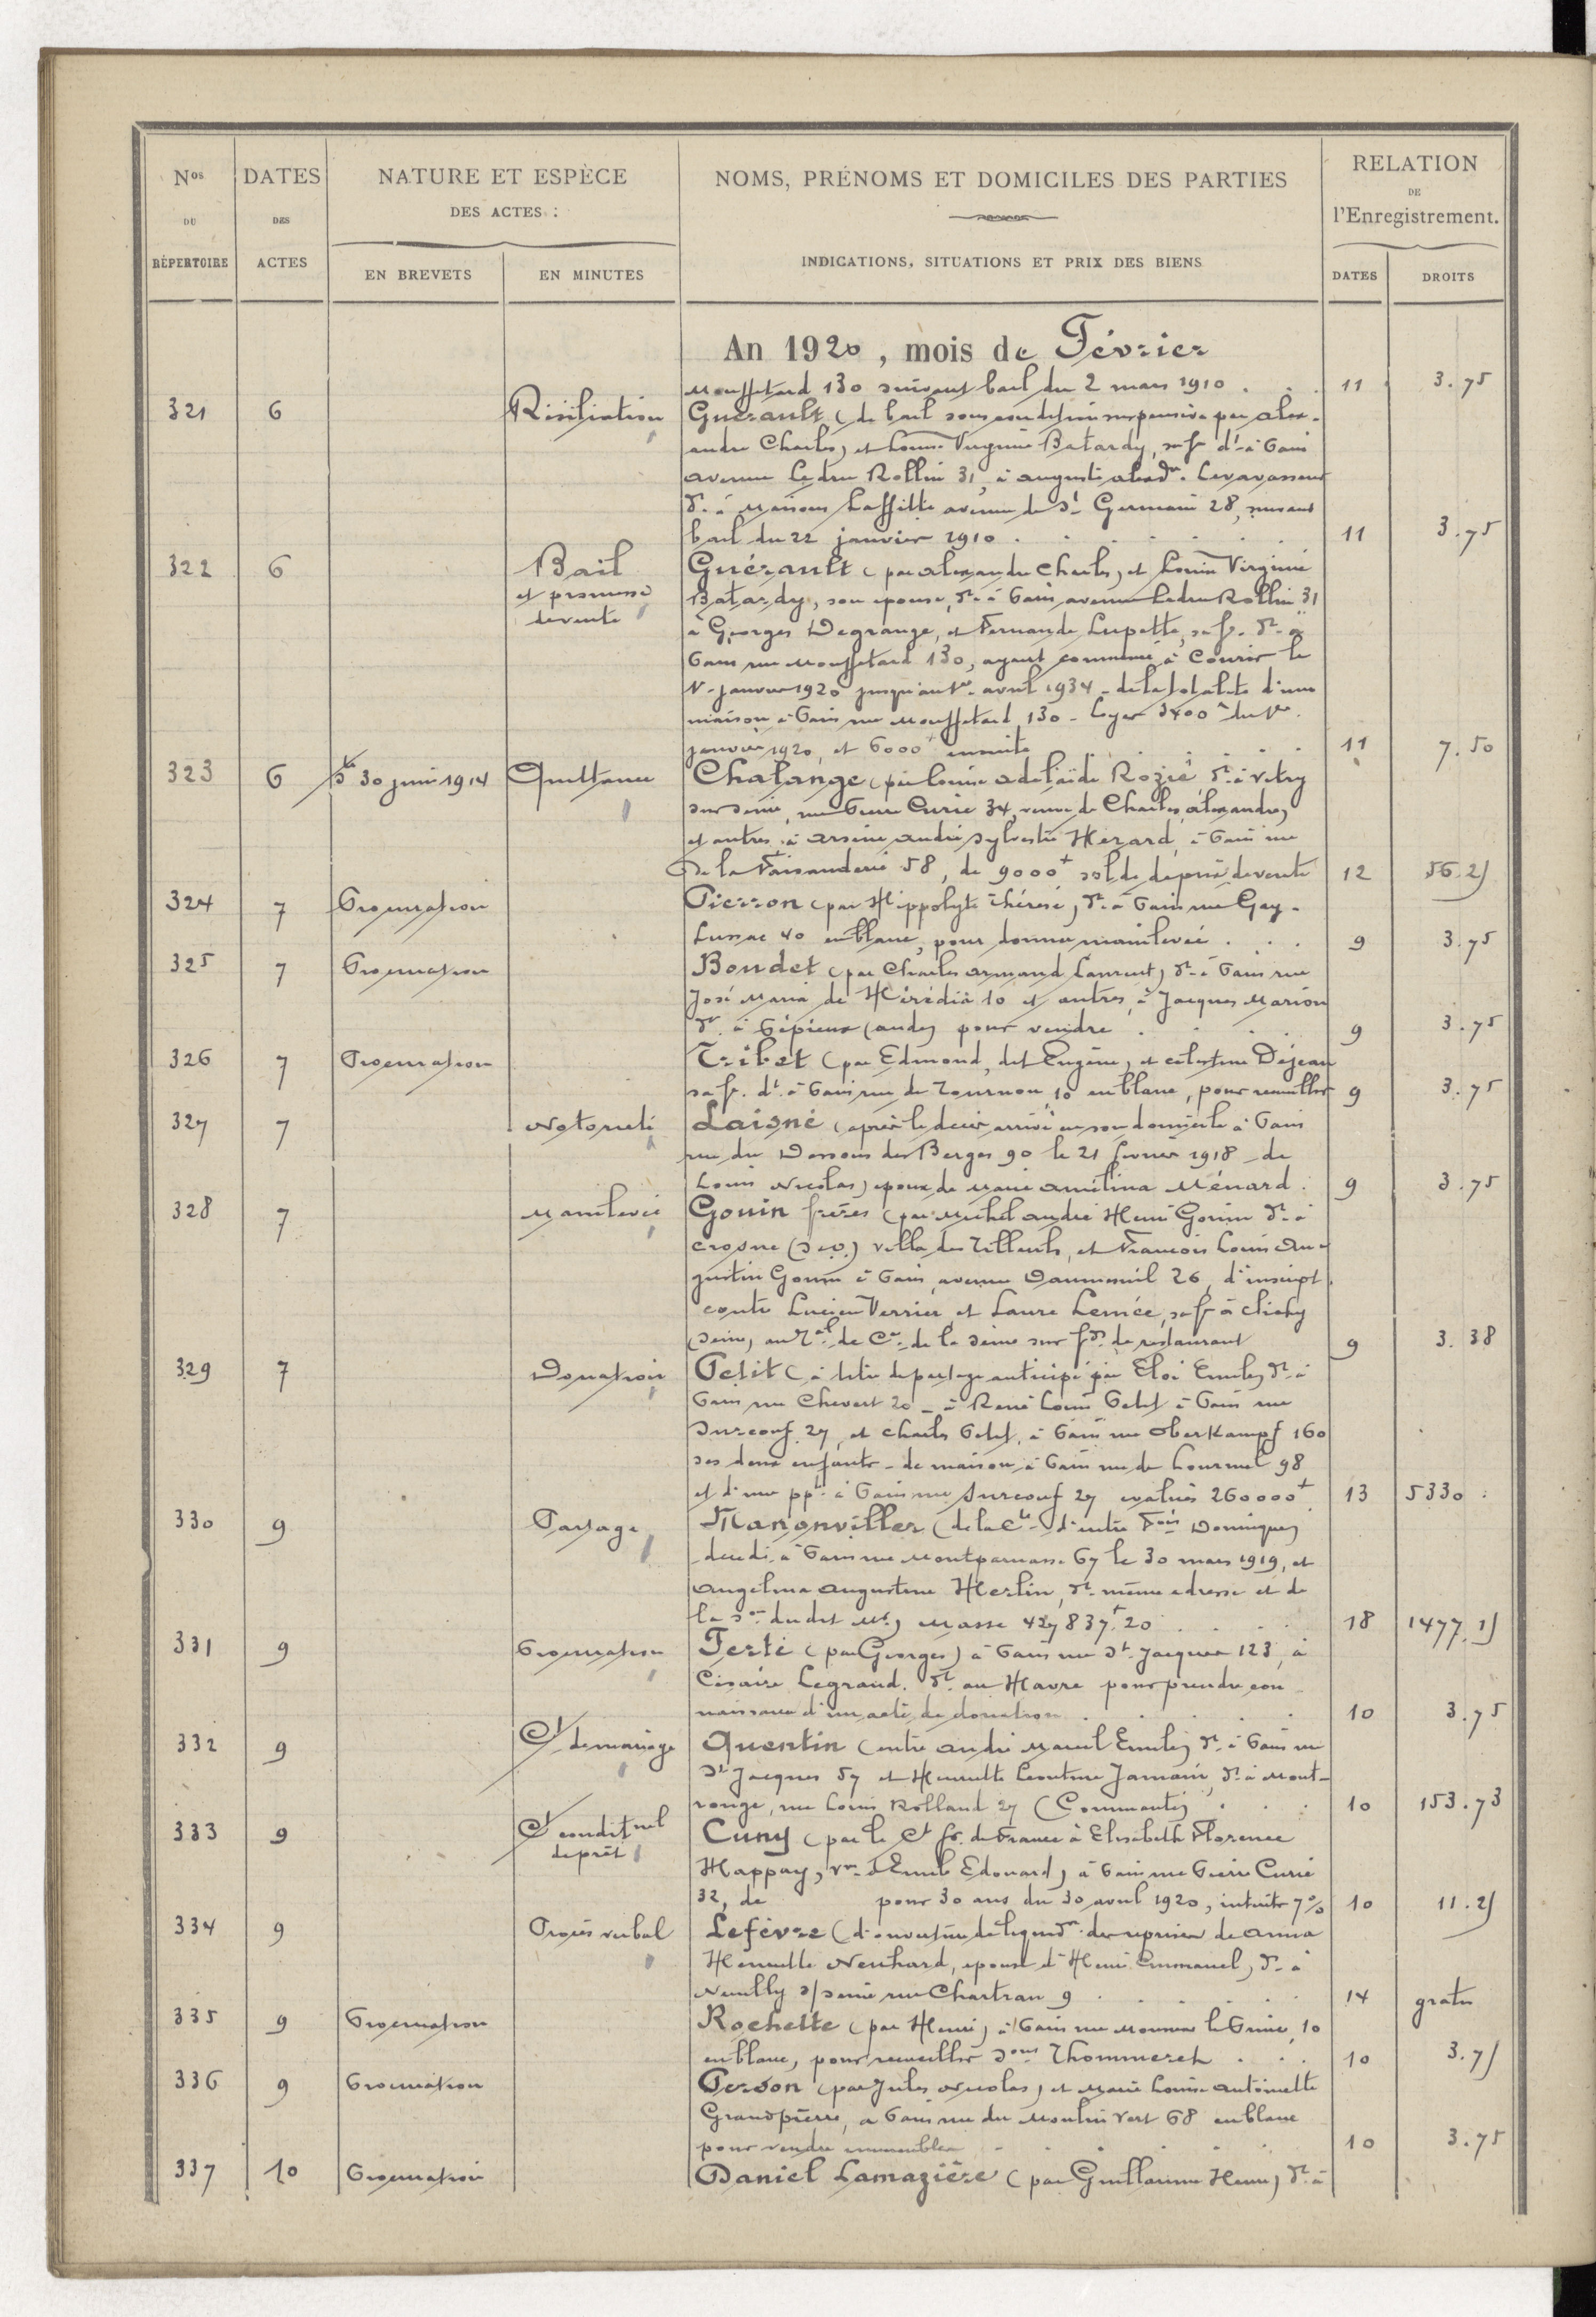 Nos DU RÉPERTOIRE
DATES DES ACTES
NATURE ET ESPÈCE DES ACTES :
EN BREVETS
EN MINUTES
NOMS, PRÉNOMS ET DOMICILES DES PARTIES
INDICATIONS, SITUATIONS ET PRIX DES BIENS
RELATION DE l'Enregistrement.
DATES
DROITS
An 1920, mois de Février
Mouffetard 130 suivant bail du 2 mars 1910 . . . 11 3.75
321 6 Résiliation Guérault (de bail sous condition suspensive par Alex-
andre Charles) et Louise Virginie Batardy, sa fe dt à Paris
avenue Ledru Rollin 31, à Auguste Alexdre Levavasseur
dt à Maisons Laffitte avenue de St Germain 28, suivant
bail du 22 janvier 1910 . . . 11 3.75
322 6 Bail Guérault (par Alexandre Charles) et Louise Virginie
et promesse Batardy, son épouse, dt à Paris avenue Ledru Rollin 31
de vente à Georges Degrange, et Fernande Lupette, sa fe dt à
Paris rue Mouffetard 130, ayant commencé à courir le
1er janvier 1920 jusqu'au 1er avril 1934 - de la totalité d'une
maison à Paris rue Mouffetard 130 - Loyer 3400f du 1er
janvier 1920, et 6000f ensuite . . . 11 7.50
323 6 30 juin 1914 Quittance Chalange (par Louise Adelaïde Rozié, dt à Vitry
sur Seine, rue Pierre Curie 34, veuve de Charles Alexandre)
et autres, à Arsène André Sylvestre Hérard, à Paris rue
de la Faisanderie 58, de 9000f solde de prix de vente 12 56.25
324 7 Procuration Pierron (par Hippolyte Thérèse) dt à Paris rue Gay-
Lussac 40 en blanc, pour donner mainlevée . . . 9 3.75
325 7 Procuration Boudet (par Charles Armand Laurent) dt à Paris rue
José Maria de Hérédia 10 et autres, à Jacques Marion
dt à Pépieux (Aude) pour vendre . . . 9 3.75
326 7 Procuration Tribet (par Edmond, dit Eugène) et Célestine Déjean
sa fe dt à Paris rue de Tournon 10 en blanc, pour recueillir 9 3.75
327 7 Notoriété Laisné (après le décès arrivé en son domicile à Paris
rue du Dessous des Berges 90 le 21 février 1918 - de
Louis Nicolas) époux de Marie Amélina Ménard . 9 3.75
328 7 Mainlevée Gouin frères (par Michel André Henri Gouin dt à
Crosne (S.e.O.) villa des Tilleuls, et François Louis Au-
gustin Gouin à Paris, avenue Daumesnil 26, d'inscript.
contre Lucien Verrier et Laure Lemée, sa fe à Clichy
(Seine) au Tal de Ce de la Seine sur fds de restaurant 9 3.38
329 7 Donation Petit (à titre de partage anticipé par Eloi Emile) dt à
Paris rue Chevert 20 - à René Louis Petit à Paris rue
Surcouf 27, et Charles Petit, à Paris rue Oberkampf 160
ses deux enfants - de maison à Paris rue de Lourmel 98
et d'une ppté à Paris rue Surcouf 27 évalués 260000f 13 5330 .
330 9 Partage Manonviller (de la Cté d'entre Fois Dominique)
décédé à Paris rue Montparnasse 67 le 30 mars 1919, et
Angelina Augustine Herlin, dt même adresse et de
la son dudit Mr) Masse 427837f.20 . . . 18 1477.15
331 9 Procuration Ferté (par Georges) à Paris rue St Jacques 123, à
Césaire Legrand, dt au Havre pour prendre con-
naissance d'un acte de donation . . . 10 3.75
332 9 Ct de mariage Quentin (entre André Marcel Emile) dt à Paris rue
St Jacques 57 et Henriette Léontine Jamain, dt à Mont-
rouge, rue Louis Rolland 27 (Communauté) . . . 10 153.73
333 9 Ct conditnel de prêt Cuny (par le Ct fr. de France à Elisabeth Florence
Happay, ve d'Emile Edouard) à Paris rue Pierre Curie
32, de pour 30 ans du 30 avril 1920, intérêts 7% 10 11.25
334 9 Procès verbal Lefèvre (d'ouverture de liquidon des reprises de Anna
Henriette Neuhard, épouse d'Henri Emmanuel) dt à
Neuilly s/Seine rue Chartran 9 . . . 14 gratis
335 9 Procuration Rochette (par Henri) à Paris rue Monsieur le Prince, 10
en blanc, pour recueillir son Thommeret . . . 10 3.75
336 9 Procuration Person (par Jules Nicolas) et Marie Louise Antoinette
Grandpierre, à Paris rue du Moulin Vert 68 en blanc
pour vendre immeubles . . . 10 3.75
337 10 Procuration Daniel Lamazière (par Guillaume Henri) dt à